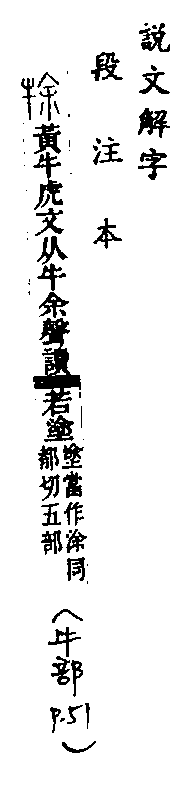 說文解字
段注本
㻌黃牛虎文从牛余聲讀若塗塗當作涂同
都切五部
(牛部
P.51)